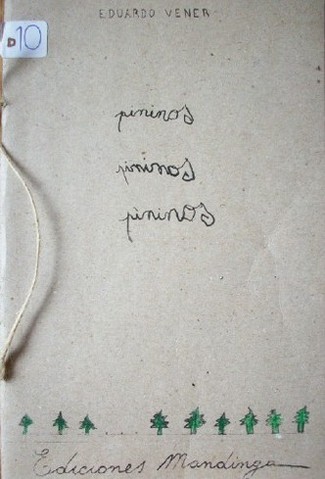 EDUARDO VENER
D10
pininos
pininos
pininos
Ediciones Mandinga